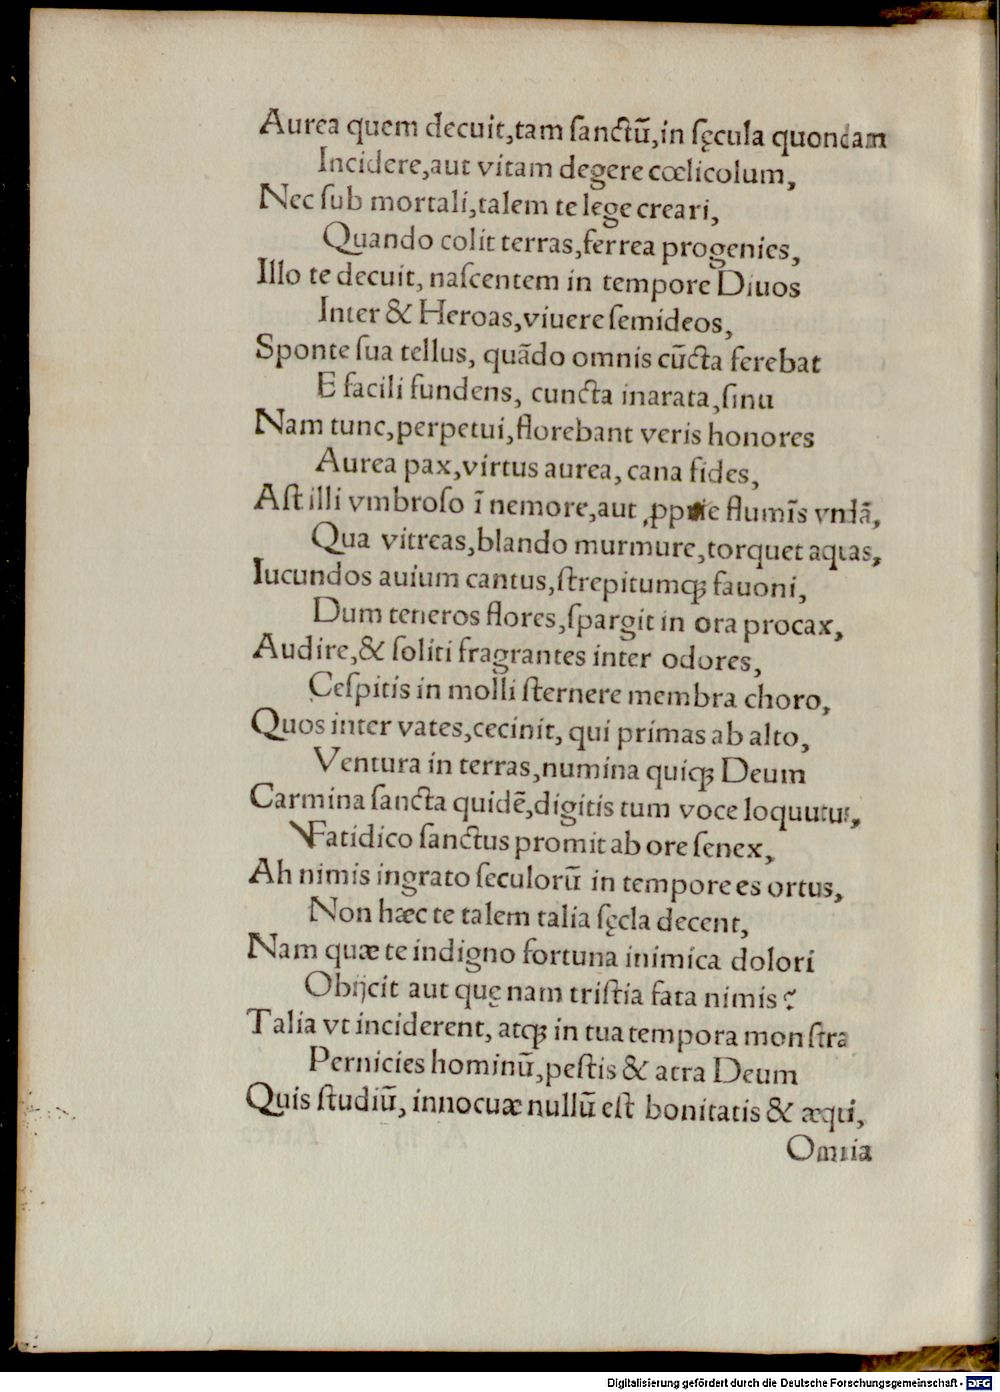 Aurea quem decuit,tam ſanctū,in ſęcula quondam
Incidere,aut vitam degere cœlicolum,
Nec ſub mortali,talem te lege creari,
Quando colit terras,ferrea progenies,
Illo te decuit, naſcentem in tempore Diuos
Inter & Heroas,viuere ſemideos,
Sponte ſua tellus, quãdo omnis cūcta ferebat
E facili fundens, cuncta inarata,ſinu
Nam tunc,perpetui,florebant veris honores
Aurea pax,virtus aurea, cana fides,
Aſt illi vmbroſo ī nemore,aut ꝓpter flumīs vndã,
Qua vitreas,blando murmure,torquet aquas,
Iucundos auium cantus,ſtrepitumqꝫ fauoni,
Dum teneros flores,ſpargit in ora procax,
Audire,& ſoliti fragrantes inter odores,
Ceſpitis in molli ſternere membra choro,
Quos inter vates,cecinit, qui primas ab alto,
Ventura in terras,numina quiqꝫ Deum
Carmina ſancta quidē,digitis tum voce loquutus,
Fatidico ſanctus promit ab ore ſenex,
Ah nimis ingrato ſeculorū in tempore es ortus,
Non hæc te talem talia ſęcla decent,
Nam quæ te indigno fortuna inimica dolori
Obijcit aut quę nam triſtia fata nimis ?
Talia vt inciderent, atqꝫ in tua tempora monſtra
Pernicies hominū,peſtis & atra Deum
Quis ſtudiū, innocuæ nullū eſt bonitatis & æqui,
Omnia
Digitalisierung gefördert durch die Deutsche Forschungsgemeinschaft - DFG